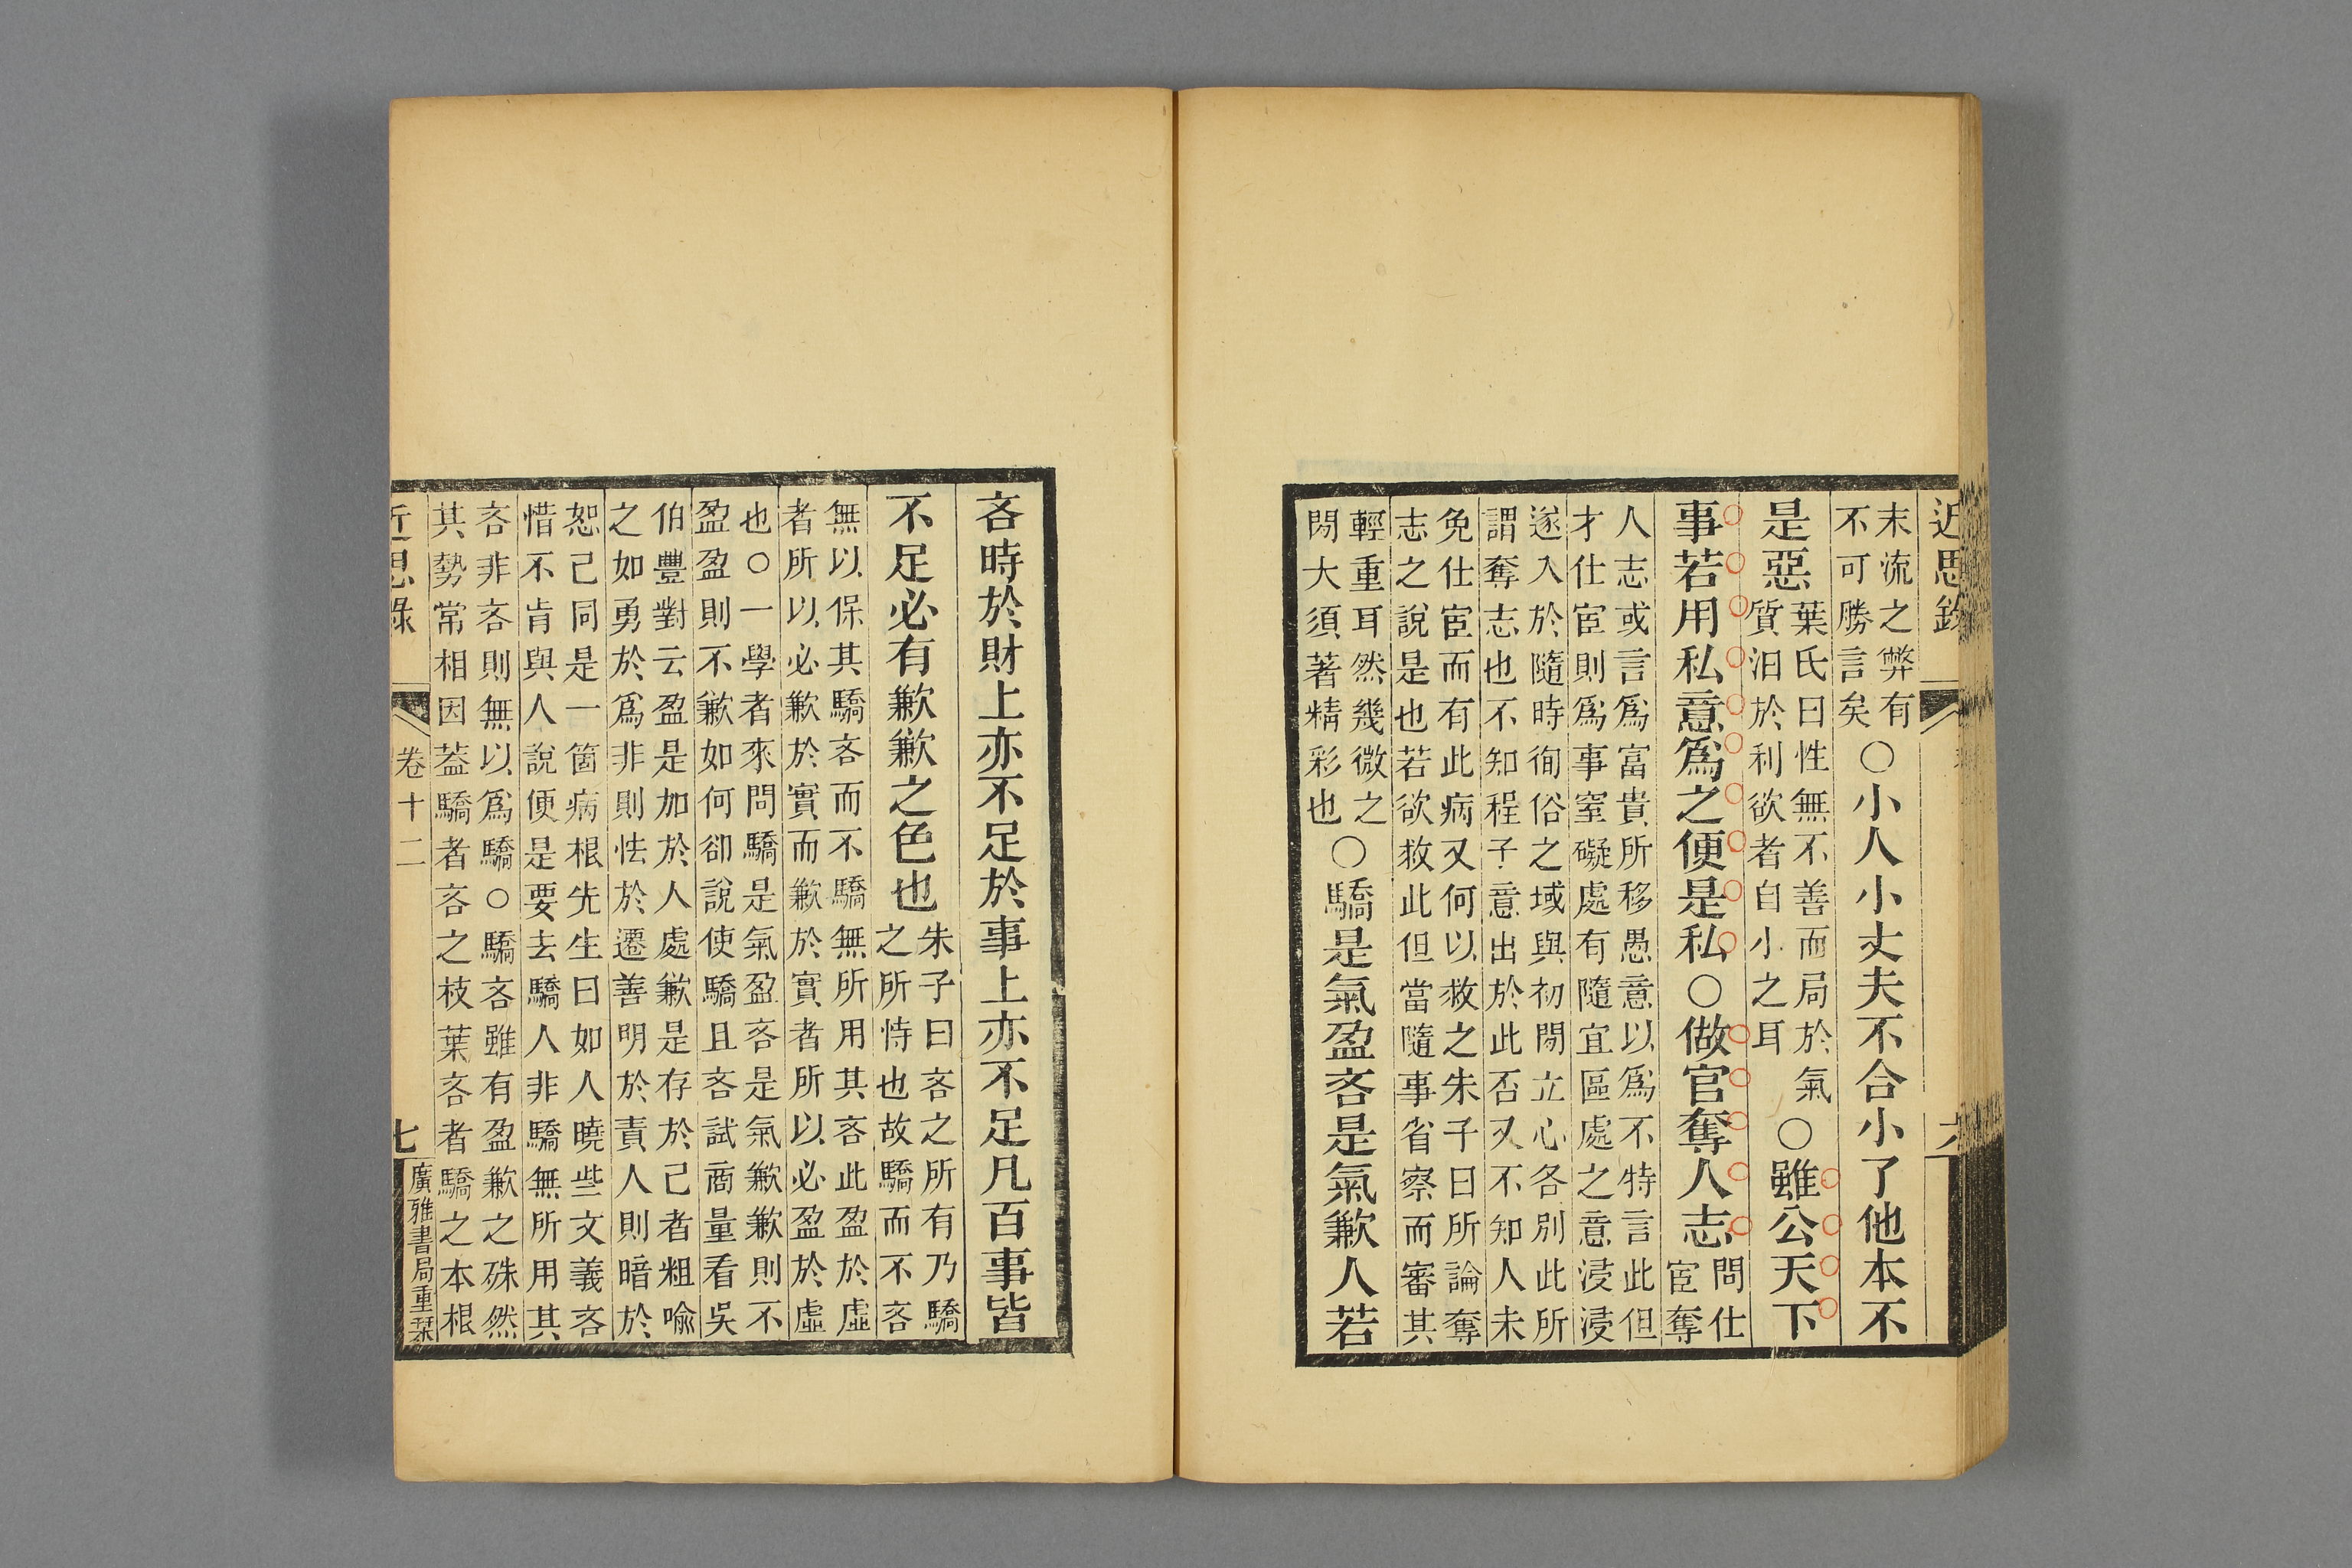 近思錄
末流之弊有
不可勝言矣
○小人小丈夫不合小了他本不
是惡
葉氏曰性無不善而局於氣
質汩於利欲者自小之耳
○雖公天下
事若用私意爲之便是私○做官奪人志
問仕
宦奪
人志或言爲富貴所移愚意以爲不特言此但
才仕宦則爲事窒礙處有隨宜區處之意浸浸
遂入於隨時徇俗之域與初間立心各別此所
謂奪志也不知程子意出於此否又不知人未
免仕宦而有此病又何以救之朱子曰所論奪
志之說是也若欲救此但當隨事省察而審其
輕重耳然幾微之
間大須著精彩也
○驕是氣盈吝是氣歉人若
吝時於財上亦不足於事上亦不足凡百事皆
不足必有歉歉之色也
朱子曰吝之所有乃驕
之所恃也故驕而不吝
無以保其驕吝而不驕無所用其吝此盈於虛
者所以必歉於實而歉於實者所以必盈於虛
也○一學者來問驕是氣盈吝是氣歉歉則不
盈盈則不歉如何卻說使驕且吝試商量看吳
伯豐對云盈是加於人處歉是存於己者粗喻
之如勇於爲非則怯於遷善明於責人則暗於
恕己同是一箇病根先生曰如人曉些文義吝
惜不肯與人說便是要去驕人非驕無所用其
吝非吝則無以爲驕○驕吝雖有盈歉之殊然
其勢常相因葢驕者吝之枝葉吝者驕之本根
近思錄
卷十二
七
廣雅書局重栞